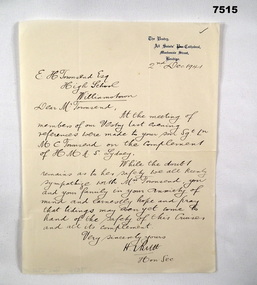 7515
The Vestry,
All Saints' Pro-Cathedral,
Bendigo.
2nd Dec 1941
E H Townsend Esq
High School
Williamstown
Dear Mr Townsend
At the meeting of
members of our Vestry last evening
references were made to your son
M C Townsend on the complement
of H.M.A.S. Sydney.
While the doubt
remains as to her safety we all keenly
sympathise with Mrs Townsend you
and your family in your anxiety of
mind and earnestly hope and pray
that tidings may even yet come to
hand of the safety of this Cruiser
and all its complement
Very sincerely yours
Hon Sec